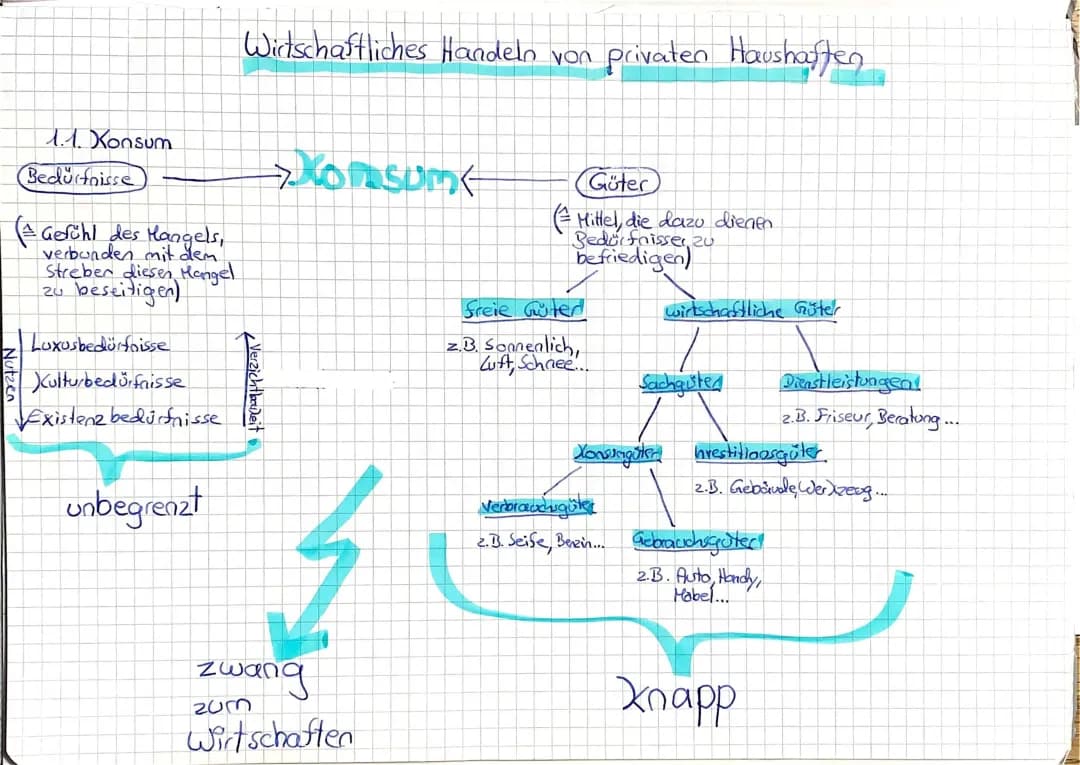 Wirtschaftliches Handeln von privaten Haushalten
1.1. Konsum
Bedürfnisse
Konsum
Güter
(≙ Gefühl des Mangels,
verbunden mit dem
Streben diesen Mangel
zu beseitigen)
(≙ Mittel, die dazu dienen
Bedürfnisse zu
befriedigen)
freie Güter
wirtschaftliche Güter
z.B. Sonnenlich,
Luft, Schnee...
Nutzen
Luxusbedürfnisse
Kulturbedürfnisse
Existenzbedürfnisse
Verzichtbarkeit
Sachgüter
Dienstleistungen
z.B. Friseur, Beratung...
Konsumgüter
Investitionsgüter
z.B. Gebäude, Werkzeug...
unbegrenzt
Verbrauchsgüter
z.B. Seife, Benzin...
Gebrauchsgüter
z.B. Auto, Handy,
Möbel...
zwang
zum
Wirtschaften
Knapp